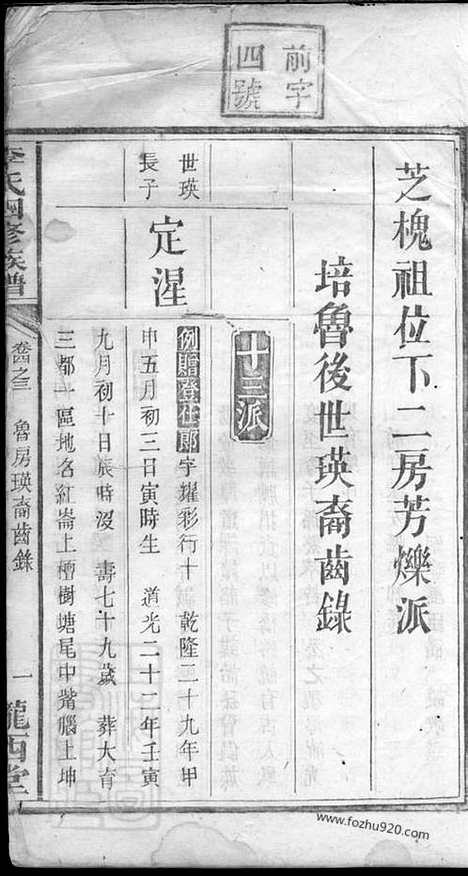 前字
四號
芝槐祖位下二房芳爍派
培魯後世瑛裔齒錄
十三派
世瑛
長子
定涅
例贈登仕郎字耀彩行十 乾隆二十九年甲
申五月初三日寅時生 道光二十二年壬寅
九月初十日辰時沒 壽七十九歲 葬大育
三都一區地名紅崙上檀樹塘尾中紫腦上坤
李氏四修族譜
卷之三
魯房瑛裔齒錄
一
隴西堂
www.fozhu920.com